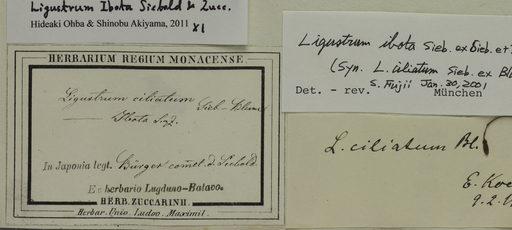 Ligustrum Ibota Siebold & Zucc.
Hideaki Ohba & Shinobu Akiyama, 2011 XI
HERBARIUM REGIUM MONACENSE
Ligustrum ciliatum Sieb - Blume
Ibota Jap.
In Japonia legt. Bürger comt. d. Siebold
Ex herbario Lugduno-Batavo.
HERB. ZUCCARINII.
Herbar. Univ. Ludov. Maximil.
Ligustrum ibota Sieb. ex Sieb. et
(Syn. L. ciliatum Sieb. ex Bl
S. Fujii Jan. 30, 2001
Det. - rev. München
L. ciliatum Bl.
E. Koe
9.2.